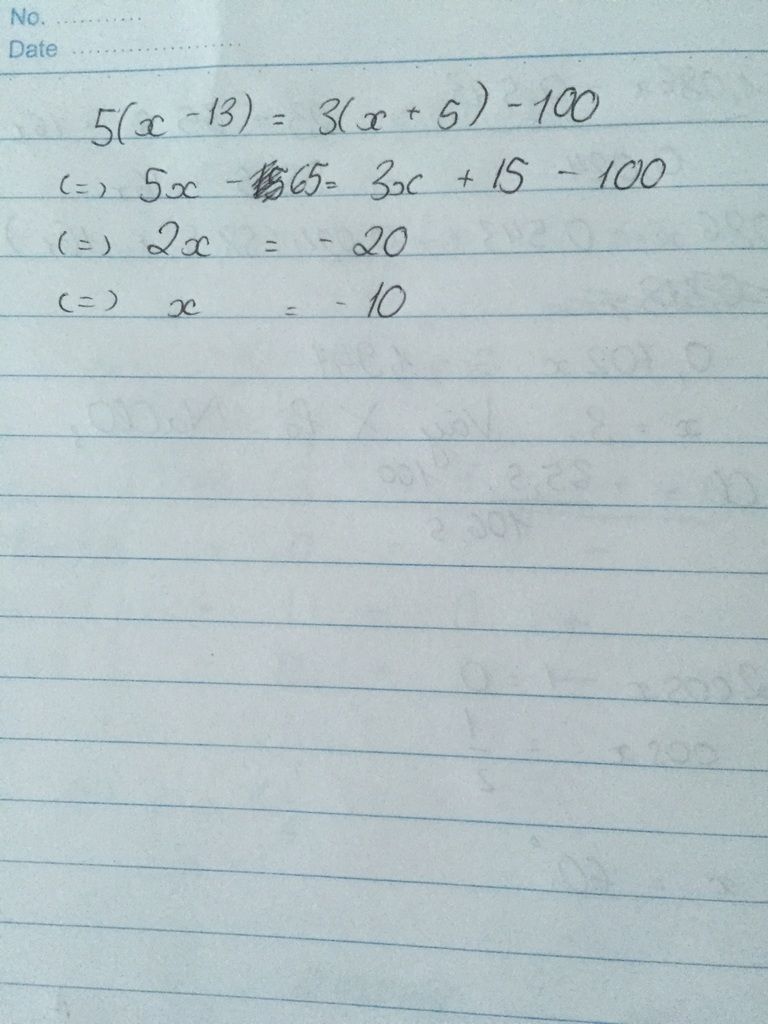 No. ............
Date ........................
5(x - 13) = 3(x + 5) - 100
(=) 5x - 65 = 3x + 15 - 100
(=) 2x = - 20
(=) x = - 10